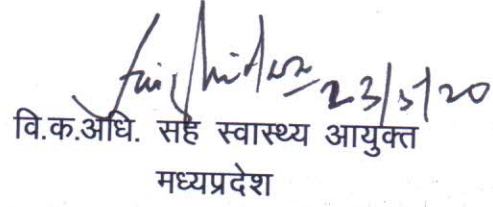 23/5/20
वि.क.अधि. सह स्वास्थ्य आयुक्त
मध्यप्रदेश